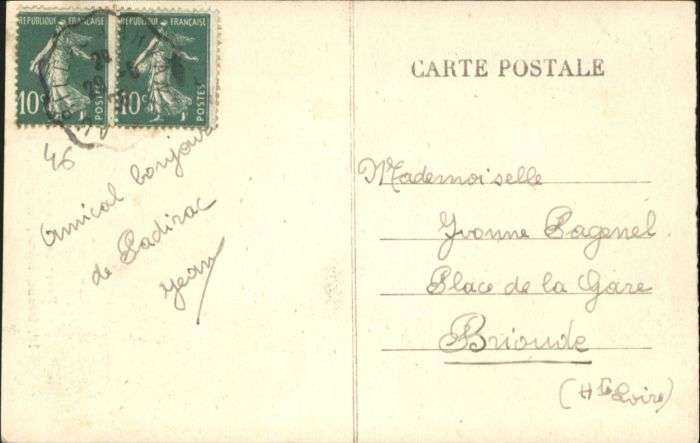 REPUBLIQUE FRANÇAISE
10c POSTES
REPUBLIQUE FRANÇAISE
10c POSTES
46
Amical bonjour
de Padirac
Jean
CARTE POSTALE
Mademoiselle
Yvonne Pagenel
Place de la Gare
Brioude
(Hte Loire)